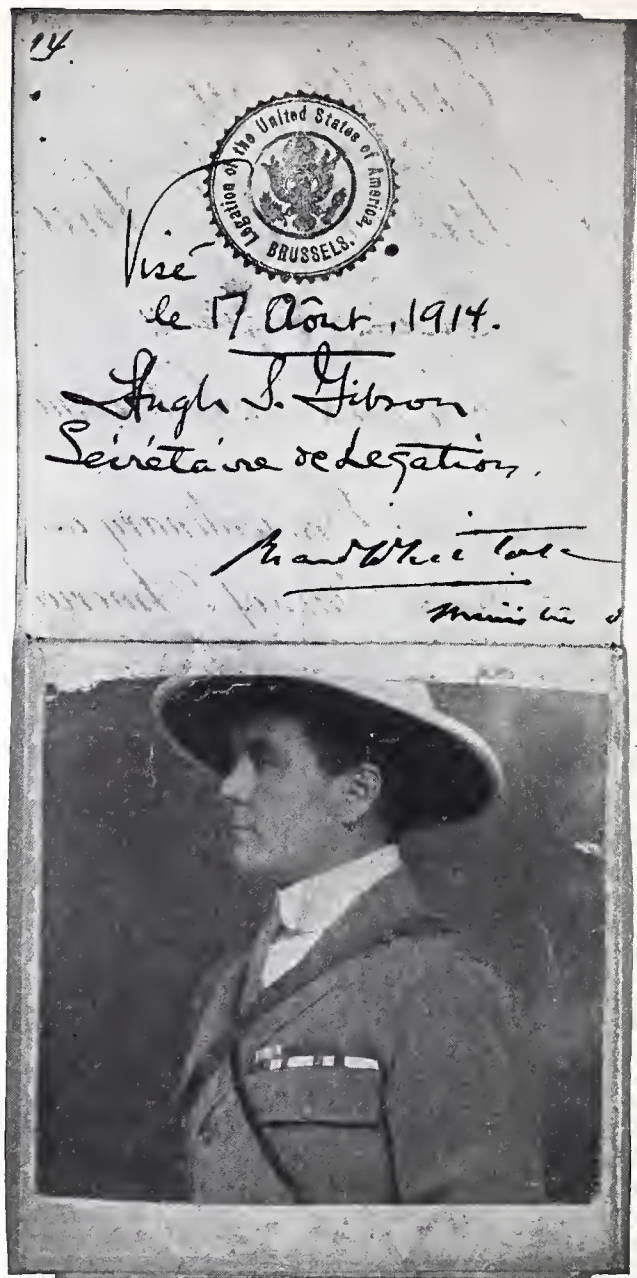 14.
Legation of the United States of America,
BRUSSELS.
Visé
le 17 Août, 1914.
Hugh S. Gibson
Sécrétaire de Legation.
Brand Whitlock